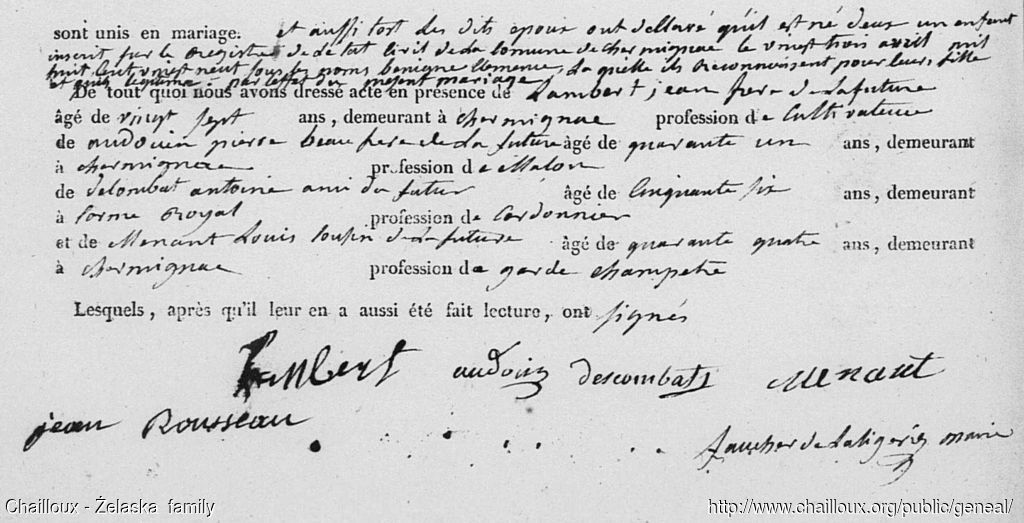 sont unis en mariage. et aussi tost les dits epoux ont desllaré qu'il est né deux un enfant
inscrit sur le Registre de de letat Civil de la Comune de chermignac le vingt trois avril mil
huit Cent vingt neuf sous les noms benigne clemence, La quelle ils Reconnoissent pour leurs fille
et par leffet du present mariage
De tout quoi nous avons dressé acte en présence de Lambert jean frere de La future
âgé de vingt sept ans, demeurant à chermignac profession de Cultivateur
de audouin pierre beau frere de La future âgé de quarante un ans, demeurant
à chermignac profession de Malon
de delombat antoine ami du futur âgé de Cinquante six ans, demeurant
à Corme Royal profession de Cordonnier
et de Menant Louis Cousin de La future âgé de quarante quatre ans, demeurant
à chermignac profession de garde champetre
Lesquels, après qu'il leur en a aussi été fait lecture, ont signés
Lambert audouin descombats Menant
jean Rousseau
faucher de Laligerie maire
Chailloux - Żelaska family http://www.chailloux.org/public/geneal/